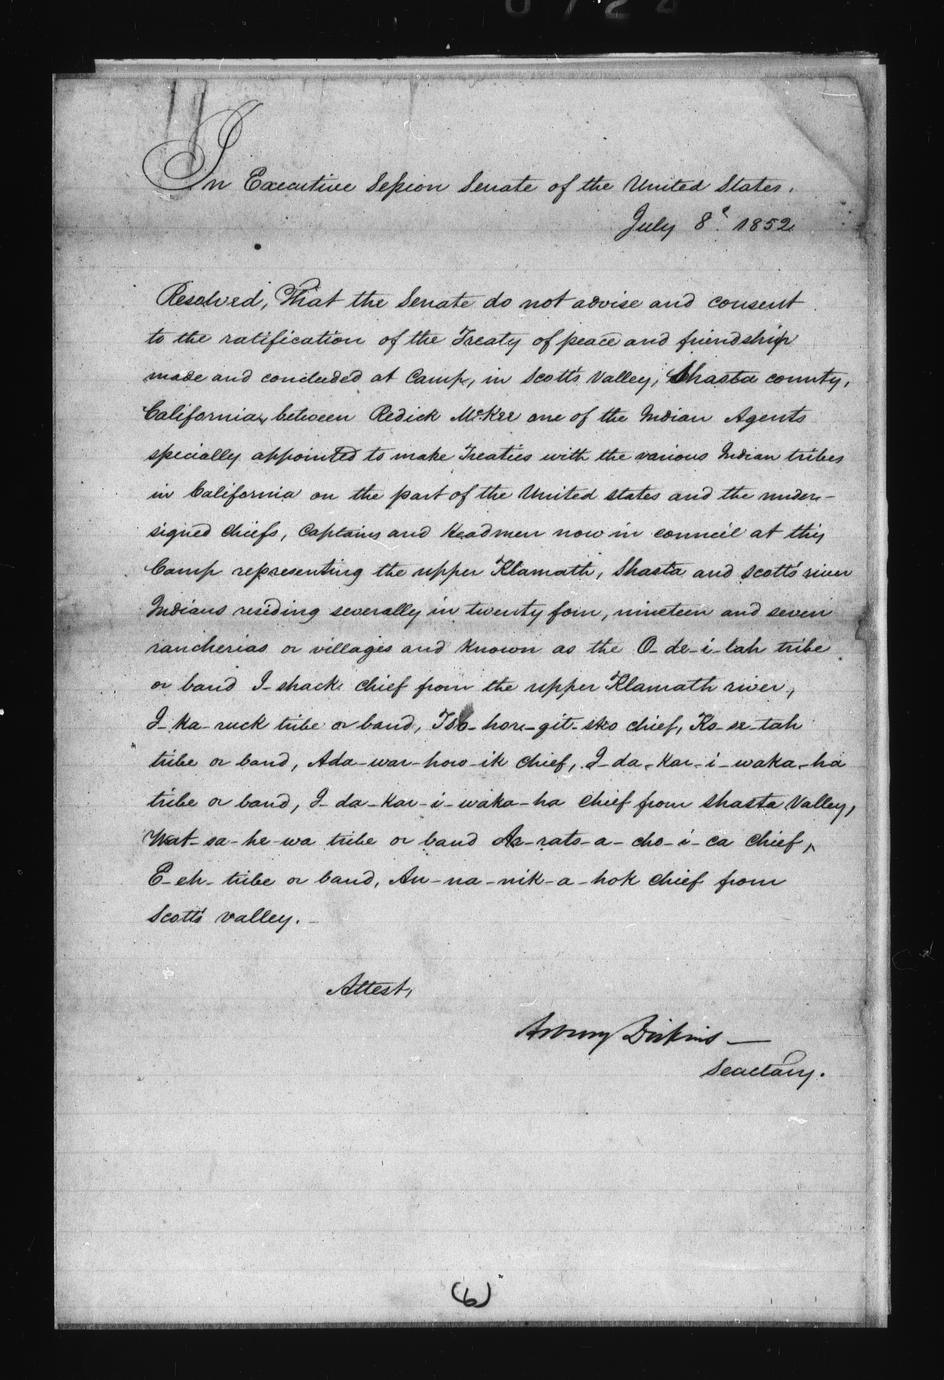 In Executive Session Senate of the United States.
July 8th 1852
Resolved, That the Senate do not advise and consent
to the ratification of the Treaty of peace and friendship
made and concluded at Camp, in Scott's Valley, Shasta county,
California, between Redick McKee one of the Indian Agents
specially appointed to make Treaties with the various Indian tribes
in California on the part of the United states and the under-
signed chiefs, Captains and Headmen now in council at this
Camp representing the upper Klamath, Shasta and Scott's river
Indians residing severally in twenty four, nineteen and seven
rancherias or villages and known as the O-de-i-lah tribe
or band I-shack chief from the upper Klamath river,
I-ka-ruck tribe or band, Tso-hor-git-sko chief, Ko-se-tah
tribe or band, Ada-war-how-ik chief, I-da-kar-i-waka-ha
tribe or band, I-da-kar-i-waka-ha chief from Shasta Valley,
Wat-sa-he-wa tribe or band Ar-rats-a-cho-i-ca chief,
E-eh- tribe or band, An-na-nik-a-hok chief from
Scott's valley.-
Attest,
Asbury Dickins
Secretary.
(6)